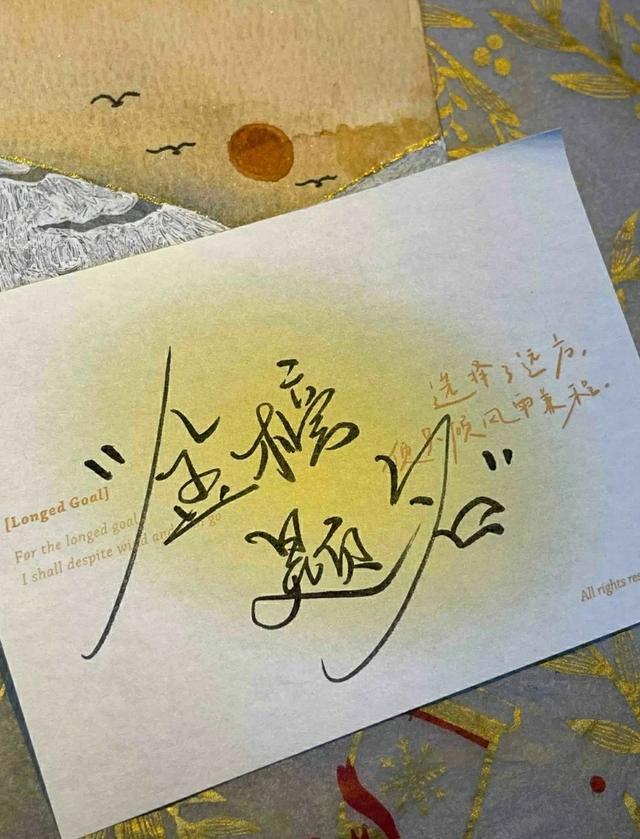 选择了远方，
便只顾风雨兼程.
"金榜
题名"
[Longed Goal]
For the longed goal
I shall despite wind and go
All rights res